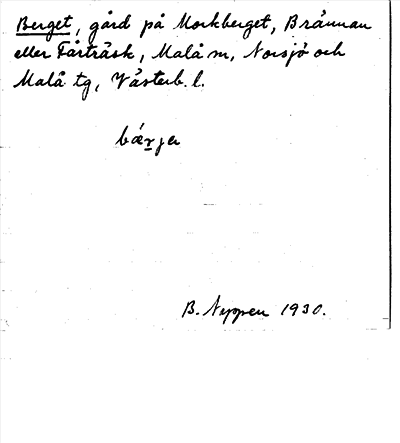 Berget, gård på Morkberget, Brännan
eller Fårträsk, Malå m, Norsjö och
Malå tg, Västerb. l.
bǽrje
B. Neppen 1930.